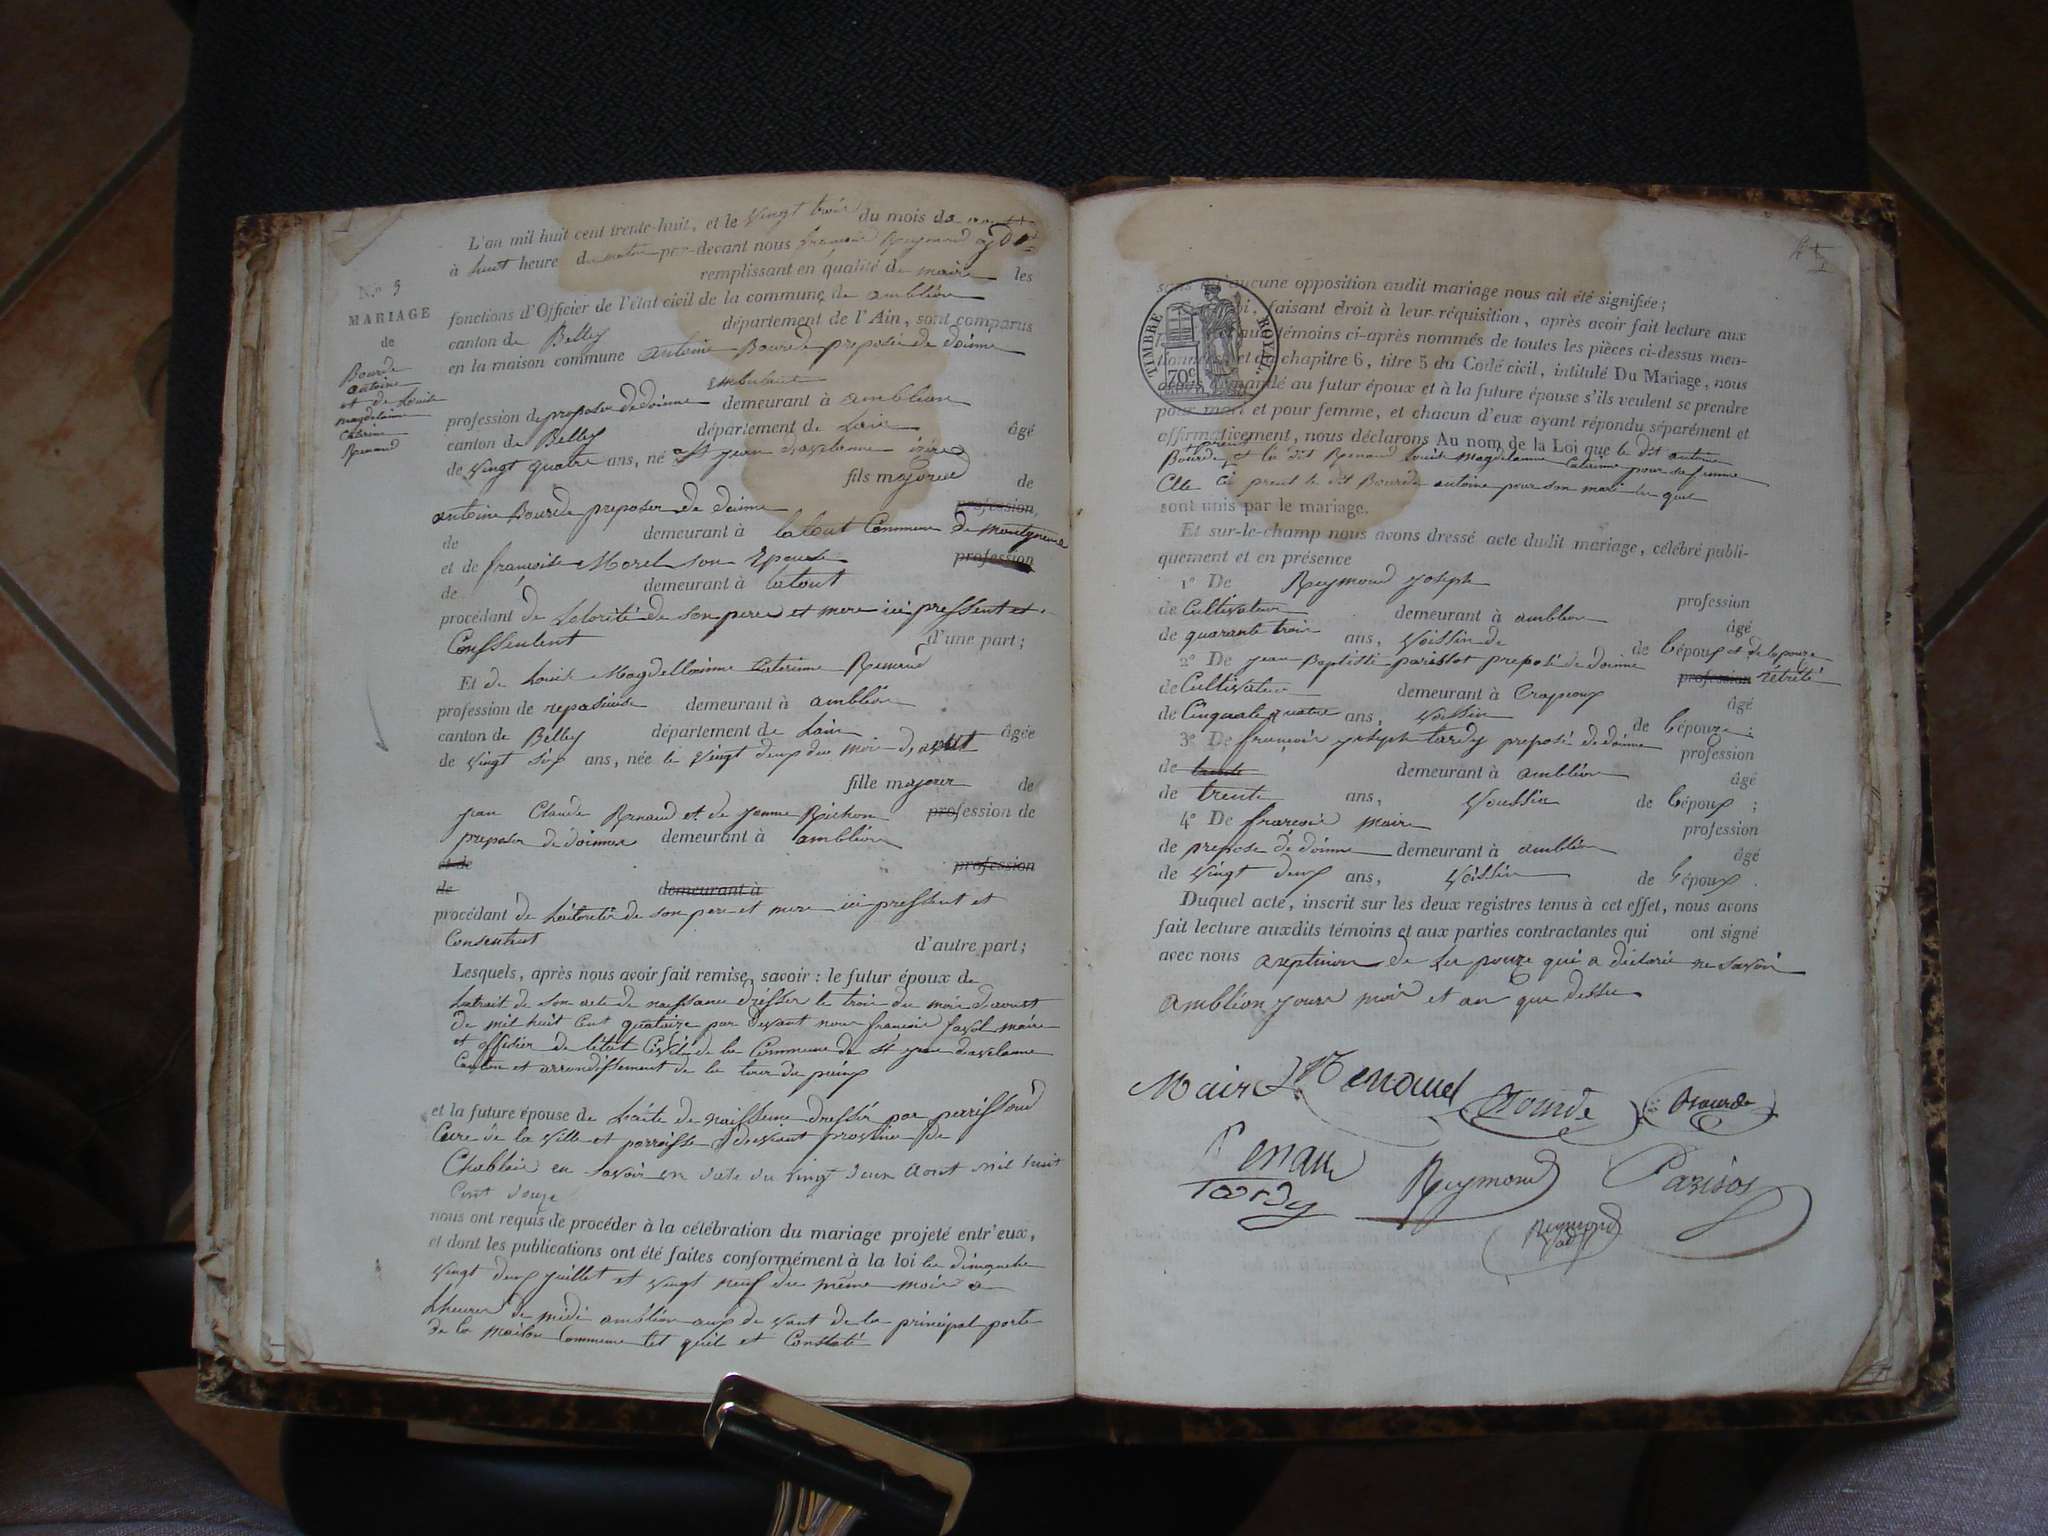 L'an mil huit cent trente-huit, et le vingt trois du mois de
à huit heure du matin par-devant nous francois Reymond
remplissant en qualité de maire les
N.º 3
fonctions d'Officier de l'état civil de la commune de amblion
MARIAGE
canton de Belley département de l'Ain, sont comparus
de
en la maison commune antoine Bourde preposé de doine
Bourde
antoine
et de Louise
magdelaine
Caterine
Renaud
profession de preposer de doinne demeurant à amblion
canton de Belley département de Lain âgé
de vingt quatre ans, né a St jean davelanne isère
fils majeur de
antoine Bourde preposer de doine profession,
de demeurant à latout Commune de
et de francoise Morel son Epouse profession
de demeurant à latout
procédant de Lotorité de son pere et mere ici pressent et
Conssentent d'une part;
Et de Louise Magdellainne Caterinne Renaud
profession de repasseuse demeurant à amblion
canton de Belley département de Lain âgée
de vingt six ans, née le vingt deux du mois daout
fille majeur de
jean Claude Renaud et de jeanne Richon profession de
preposer de doinnes demeurant à amblion
et de profession
de demeurant à
procédant de Lotorité de son pere et mere ici pressent et
Consentent d'autre part;
Lesquels, après nous avoir fait remise, savoir : le futur époux de
Lextrait de son acte de naissance dresser le trois du mois daoust
de mil huit Cent quatorze par devant nous francois favol maire
et officier de létat Civil de la Commune de St jean davelanne
Canton et arrondissement de la tour du paing
et la future épouse de Lacte de naissance dressée par perrissoud
Cure de la ville et parroisse devient province de
Chablais en savoir en date du vingt deux Aout mil huit
Cent douze
nous ont requis de procéder à la célébration du mariage projeté entr'eux,
et dont les publications ont été faites conformément à la loi les dimanche
vingt deux juillet et vingt neuf du même mois a
Lheures de midi amblion aux devant de la principal porte
de la maison Commune tel quil et Constaté
sans qu'aucune opposition audit mariage nous ait été signifiée;
faisant droit à leur réquisition, après avoir fait lecture aux
témoins ci-après nommés de toutes les pièces ci-dessus men-
et du chapitre 6, titre 5 du Code civil, intitulé Du Mariage, nous
avons demandé au futur époux et à la future épouse s'ils veulent se prendre
pour mari et pour femme, et chacun d'eux ayant répondu séparément et
affirmativement, nous déclarons Au nom de la Loi que le dit antoine
Bourde prent la dit Renaud Louise Magdelanne Caterinne pour sa femme
Elle ci prent le dit Bourde antoine pour son mari les quel
sont unis par le mariage.
Et sur-le-champ nous avons dressé acte dudit mariage, célébré publi-
quement et en présence
1º De Reymond joseph profession
de Cultivateur demeurant à amblion âgé
de quarante trois ans, Voissin de de Lépoux et de lepouze
2º De jean Baptiste parissot preposé de doinne profession retreté
de Cultivateur demeurant à Crapeoux âgé
de Cinquante quatre ans, Voissin de Lépouze;
3º De francois joseph tardy preposé de doinne profession
de demeurant à amblion âgé
de trente ans, Voissin de Lépoux;
4º De francois maire profession
de prepose de doinne demeurant à amblion âgé
de vingt deux ans, Voissin de Lépoux.
Duquel acte, inscrit sur les deux registres tenus à cet effet, nous avons
fait lecture auxdits témoins et aux parties contractantes qui ont signé
avec nous axeptinon de Lepouze qui a diclaré ne savoir
amblion jours mois et an que dessu
TIMBRE ROYAL
70c
Maire Renaud Bourde Bourde
Renau
Tardy Reymond Parisos
Reymond